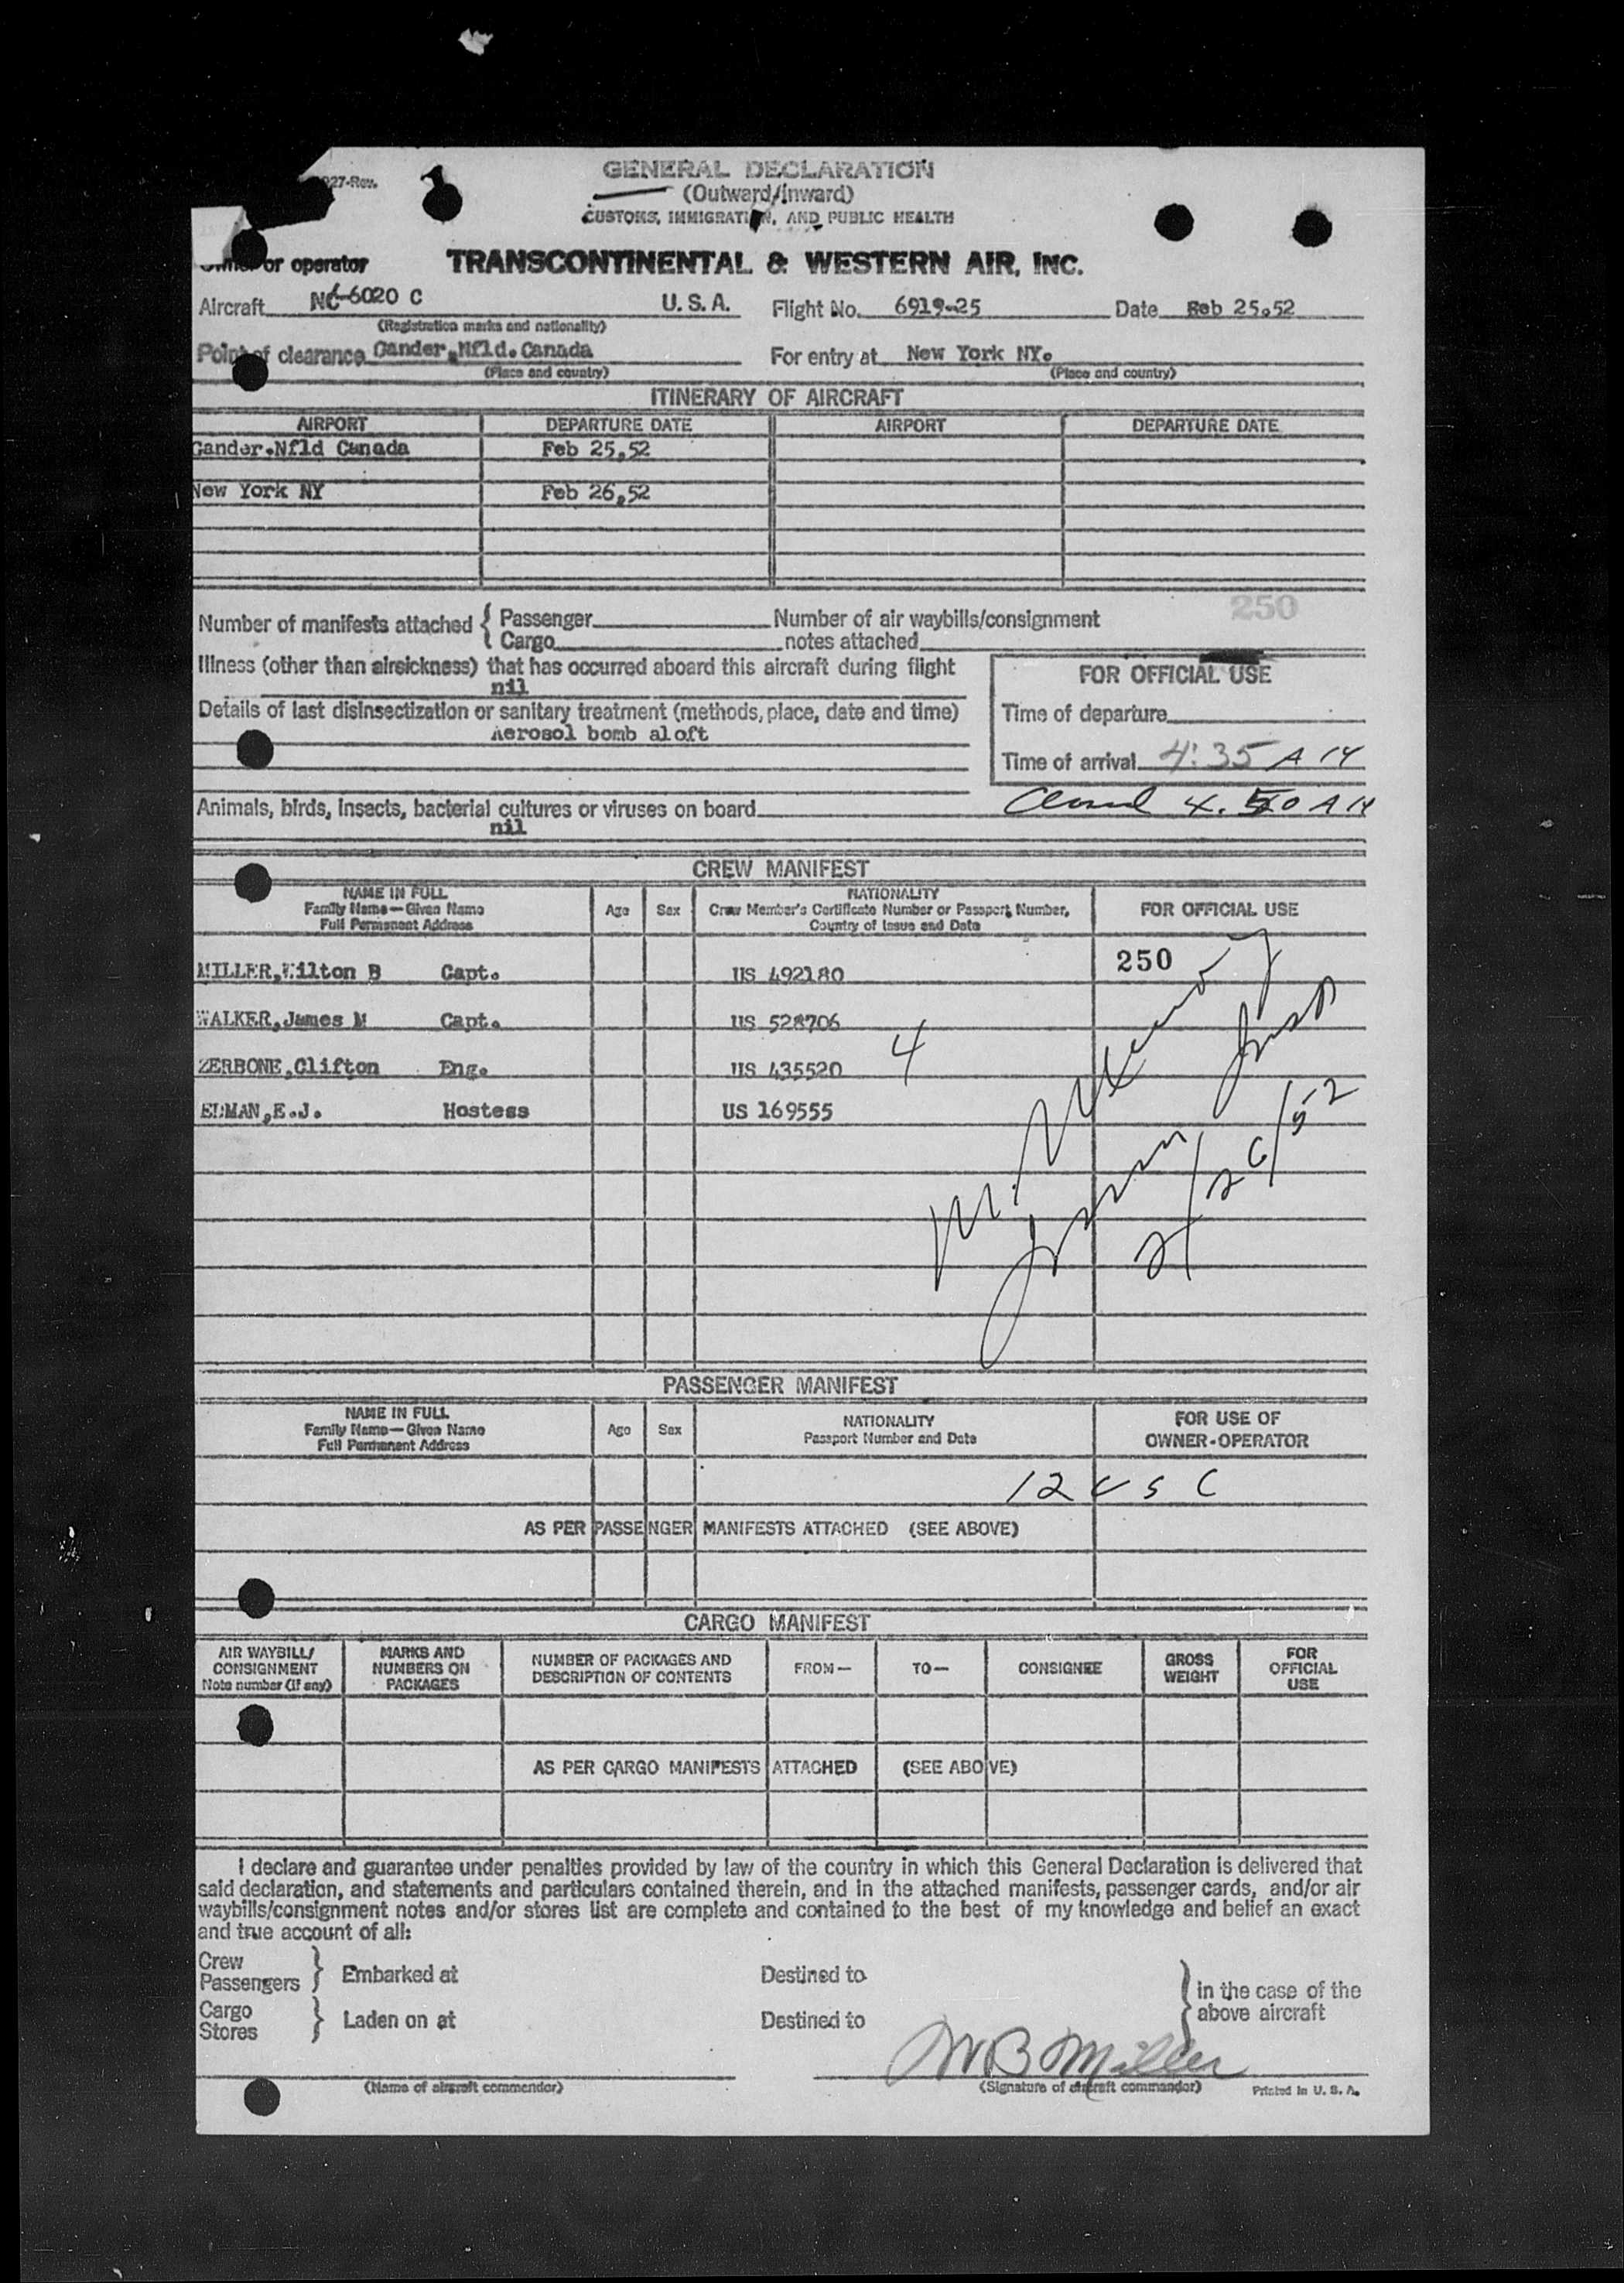 027-Rev.
GENERAL DECLARATION
(Outward/Inward)
CUSTOMS, IMMIGRATION, AND PUBLIC HEALTH
Owner or operator TRANSCONTINENTAL & WESTERN AIR, INC.
Aircraft NC-6020 C U. S. A. Flight No. 6919-25 Date Feb 25.52
(Registration marks and nationality)
Point of clearance Gander, Nfld. Canada For entry at New York NY.
(Place and country) (Place and country)
ITINERARY OF AIRCRAFT
AIRPORT DEPARTURE DATE AIRPORT DEPARTURE DATE
Gander.Nfld Canada Feb 25,52
New York NY Feb 26,52
250
Number of manifests attached { Passenger Number of air waybills/consignment
Cargo notes attached
Illness (other than airsickness) that has occurred aboard this aircraft during flight
nil
FOR OFFICIAL USE
Details of last disinsectization or sanitary treatment (methods, place, date and time)
Aerosol bomb aloft
Time of departure
Time of arrival 4:35 A M
4.50 A M
Animals, birds, insects, bacterial cultures or viruses on board
nil
CREW MANIFEST
NAME IN FULL
Family Name—Given Name
Full Permanent Address
Age Sex
NATIONALITY
Crew Member's Certificate Number or Passport Number,
Country of Issue and Date
FOR OFFICIAL USE
MILLER, Wilton B Capt. US 492180 250
WALKER, James M Capt. US 528706
ZERBONE, Clifton Eng. US 435520 4
EDMAN, E.J. Hostess US 169555
2/26/52
PASSENGER MANIFEST
NAME IN FULL
Family Name—Given Name
Full Permanent Address
Age Sex
NATIONALITY
Passport Number and Date
FOR USE OF
OWNER-OPERATOR
12 U S C
AS PER PASSENGER MANIFESTS ATTACHED (SEE ABOVE)
CARGO MANIFEST
AIR WAYBILL/
CONSIGNMENT
Note number (if any)
MARKS AND
NUMBERS ON
PACKAGES
NUMBER OF PACKAGES AND
DESCRIPTION OF CONTENTS
FROM— TO— CONSIGNEE
GROSS
WEIGHT
FOR
OFFICIAL
USE
AS PER CARGO MANIFESTS ATTACHED (SEE ABOVE)
I declare and guarantee under penalties provided by law of the country in which this General Declaration is delivered that
said declaration, and statements and particulars contained therein, and in the attached manifests, passenger cards, and/or air
waybills/consignment notes and/or stores list are complete and contained to the best of my knowledge and belief an exact
and true account of all:
Crew
Passengers } Embarked at Destined to
Cargo
Stores } Laden on at Destined to
} in the case of the
above aircraft
W B Miller
(Name of aircraft commander) (Signature of aircraft commander) Printed in U. S. A.